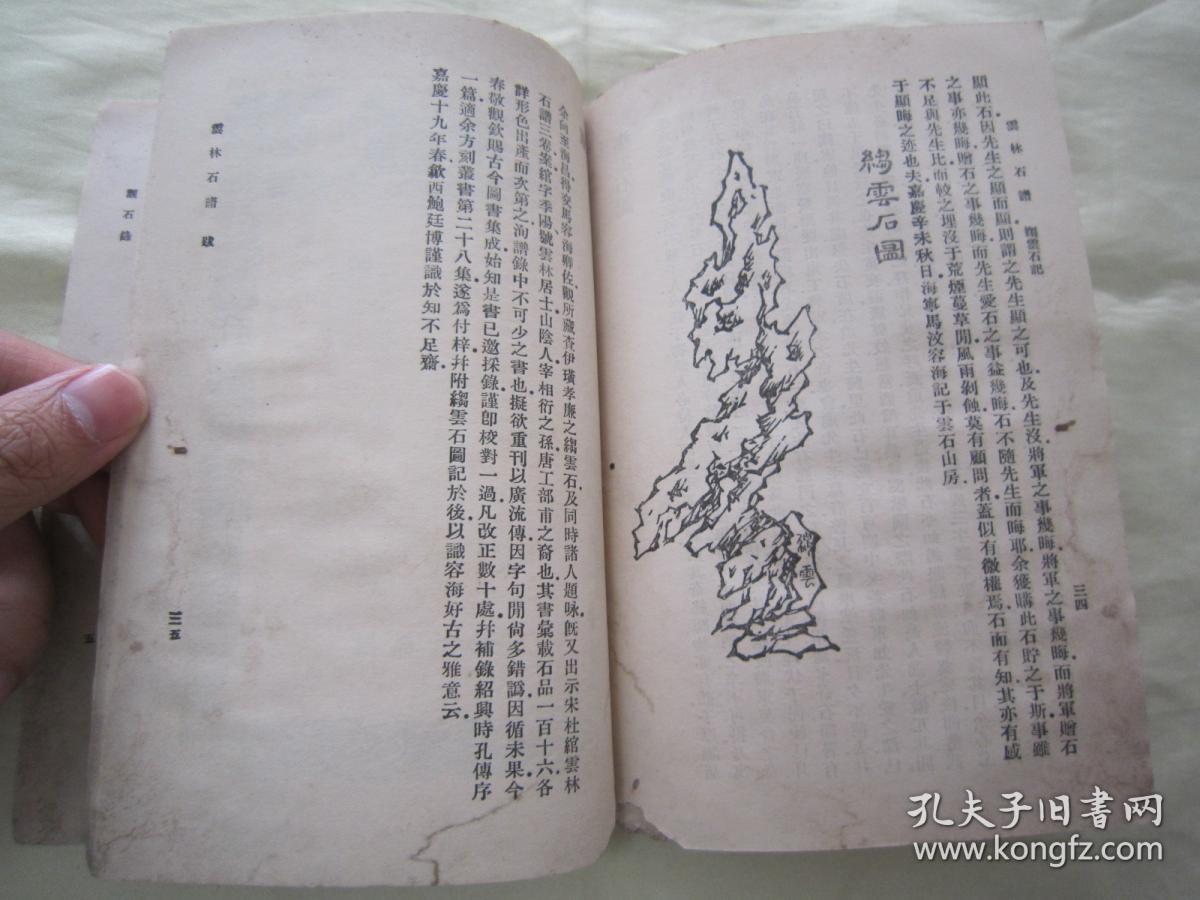 雲林石譜 縐雲石記
三四
顯此石因先生之顯而顯則謂之先生顯之可也及先生沒將軍之事幾晦將軍之事幾晦而將軍贈石
之事亦幾晦贈石之事幾晦而先生愛石之事益幾晦石不隨先生而晦耶余獲購此石貯之于斯事雖
不足與先生比而較之埋沒于荒煙蔓草閒風雨剝蝕莫有顧問者蓋似有微權焉石而有知其亦有感
于顯晦之迹也夫嘉慶辛未秋日海寧馬汶容海記于雲石山房
縐雲石圖
縐雲
余向至海昌得交馬容海聊佐觀所藏查伊璜孝廉之縐雲石及同時諸人題咏旣又出示宋杜綰雲林
石譜三卷案綰字季陽號雲林居士山陰人宰相衍之孫唐工部甫之裔也其書彙載石品一百十六各
詳形色出產而次第之洵譜錄中不可少之書也擬欲重刊以廣流傳因字句閒尙多錯譌因循未果今
春敬觀欽賜古今圖書集成始知是書已邀採錄謹卽校對一過凡改正數十處幷補錄紹興時孔傳序
一篇適余方刻叢書第二十八集遂爲付梓幷附縐雲石圖記於後以識容海好古之雅意云
嘉慶十九年春歙西鮑廷博謹識於知不足齋
雲林石譜 跋
三五
觀石錄
五
孔夫子旧书网
www.kongfz.com